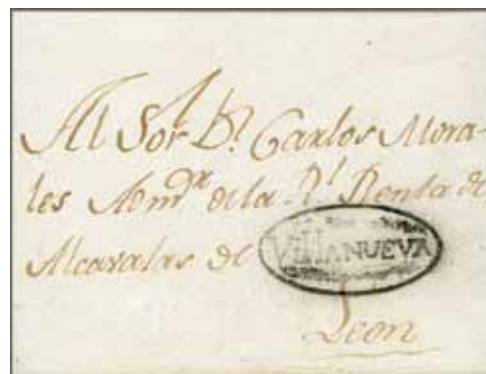 Al Sor Dn. Carlos Mora-
les Admor de la Rl. Renta de
Alcavalas de VillANUEVA
Leon